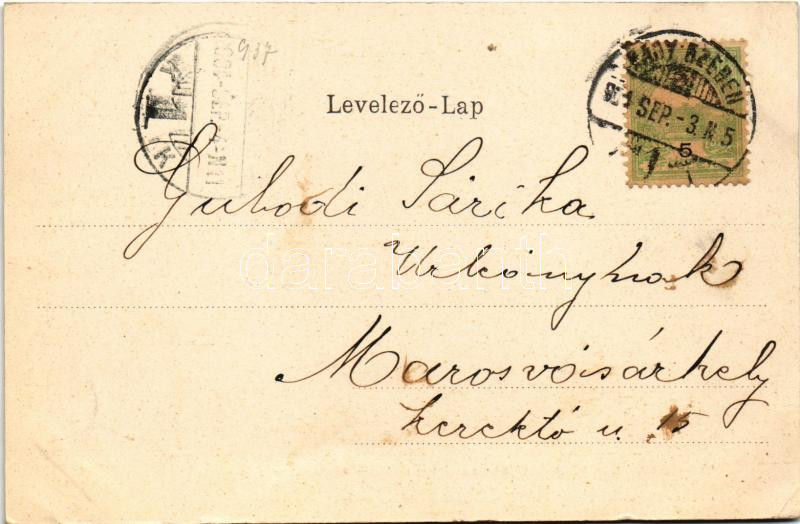 937
Levelező-Lap
NAGY-SZEBEN
SEP.-3.N.5
5
Gubodi Sárika
Urleánynak
Marosvásárhely
kerektó u. 15
darabanth